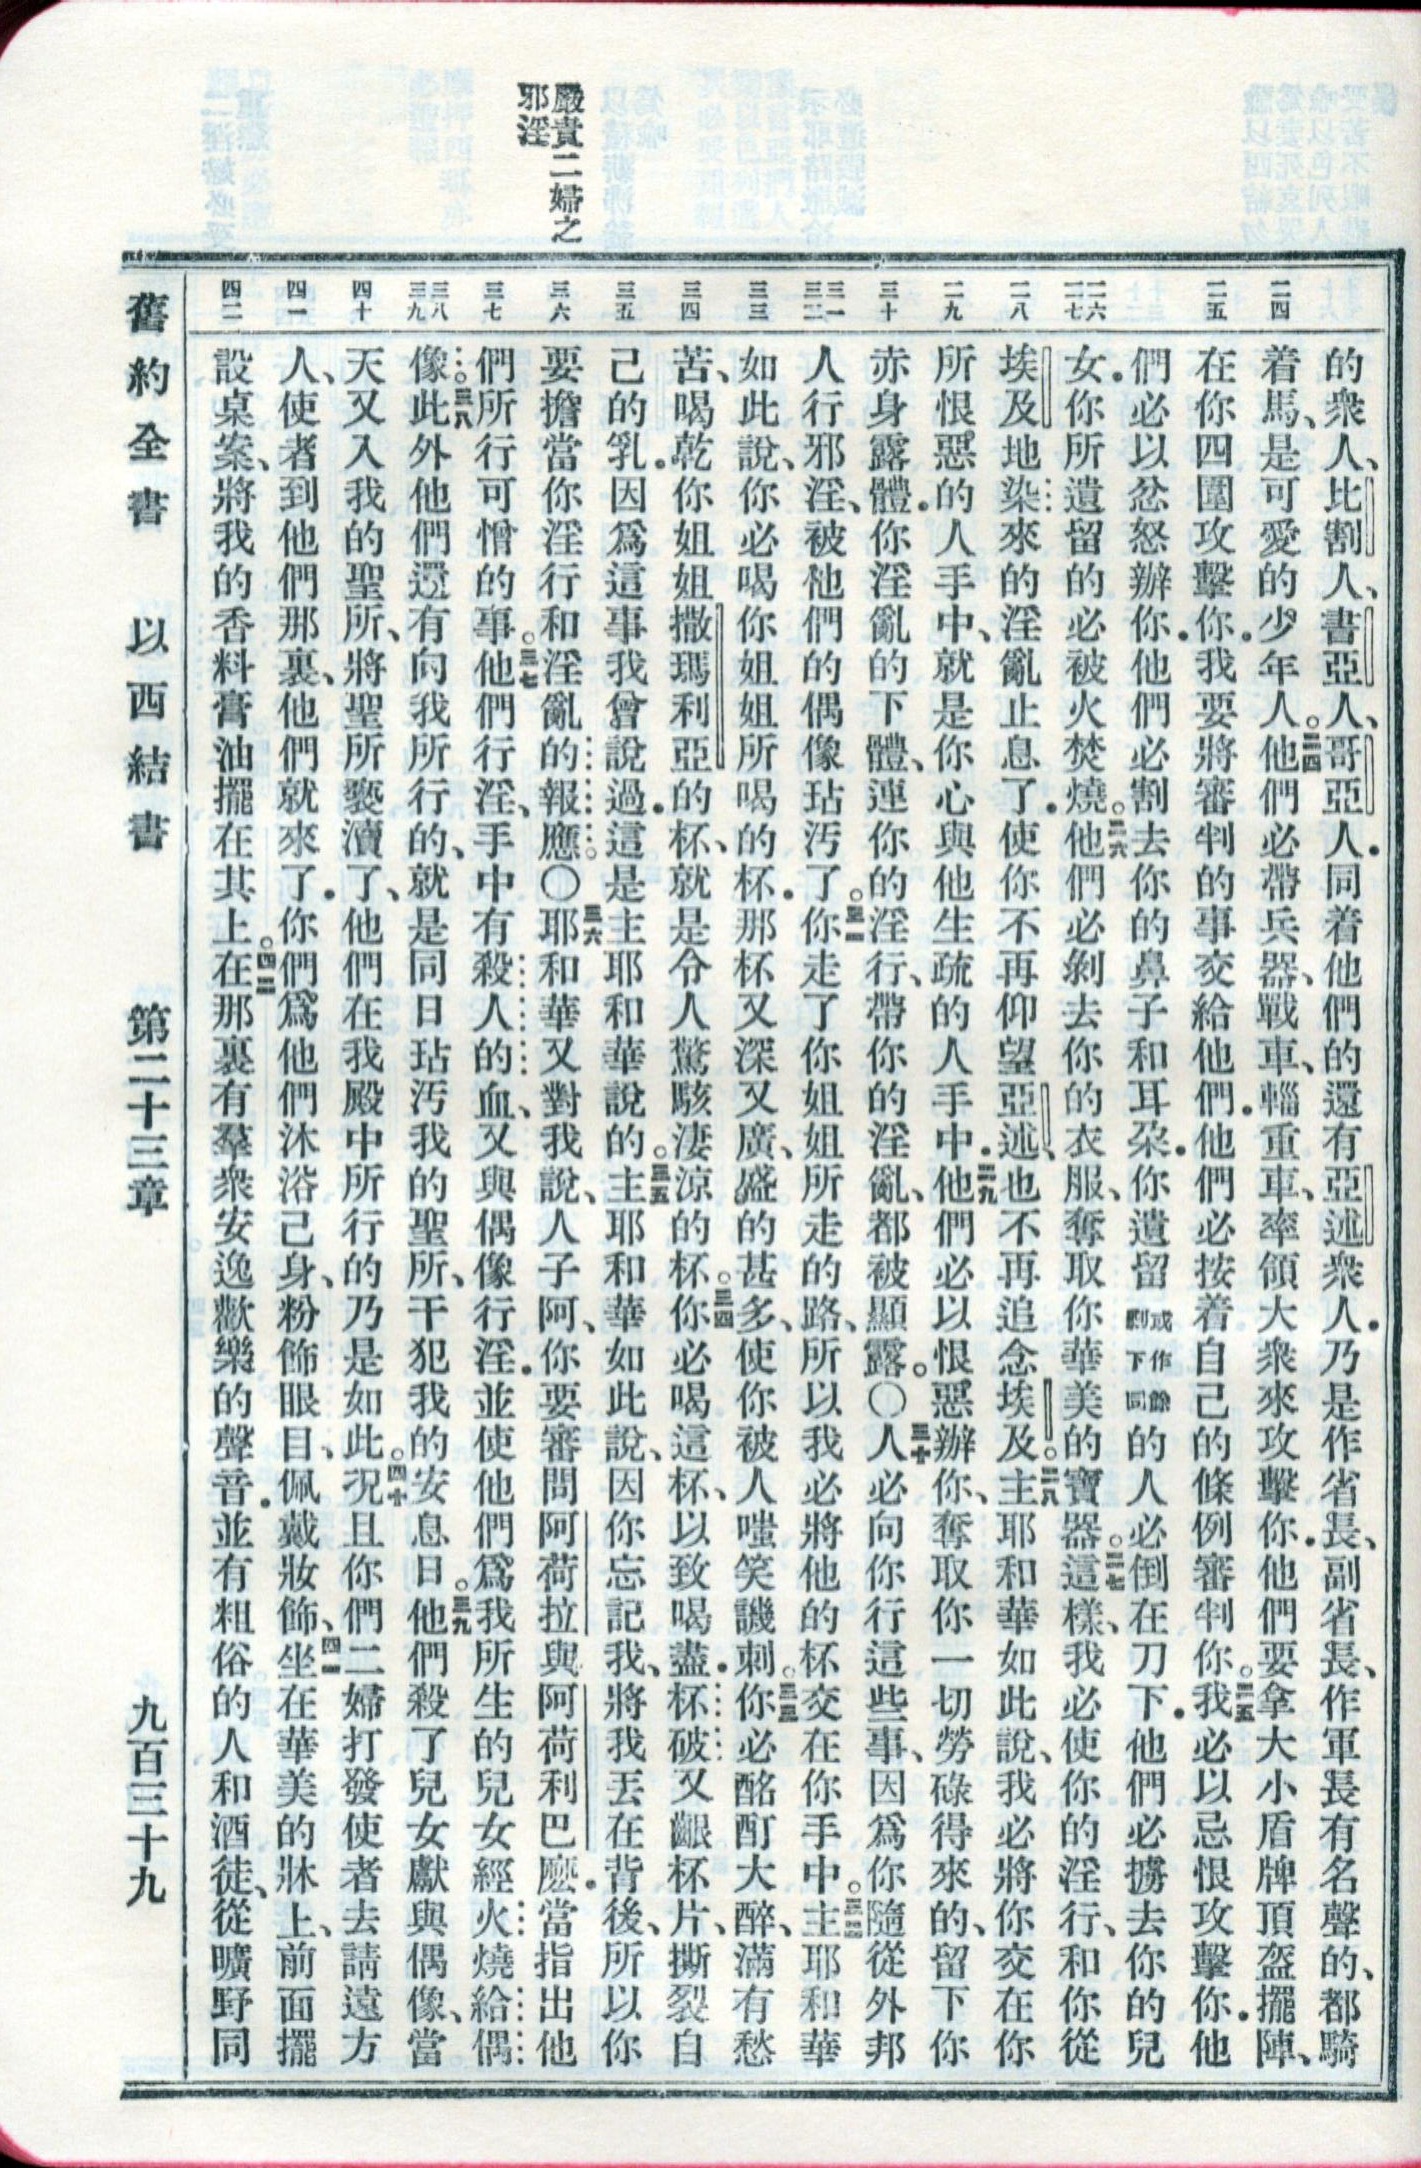 嚴責二婦之
邪淫
二四
二五
二六
二七
二八
二九
三十
三一
三二
三三
三四
三五
三六
三七
三八
三九
四十
四一
四二
的衆人、比割人、書亞人、哥亞人．同着他們的還有亞述衆人．乃是作省長、副省長、作軍長有名聲的、都騎
着馬、是可愛的少年人。二四他們必帶兵器、戰車、輜重車、率領大衆來攻擊你．他們要拿大小盾牌頂盔擺陣、
在你四圍攻擊你．我要將審判的事交給他們．他們必按着自己的條例審判你。二五我必以忌恨攻擊你．他
們必以忿怒辦你．他們必割去你的鼻子和耳朶．你遺留或作餘剩下同的人必倒在刀下．他們必擄去你的兒
女．你所遺留的必被火焚燒。二六他們必剝去你的衣服、奪取你華美的寶器。二七這樣、我必使你的淫行、和你從
埃及地染來的淫亂止息了．使你不再仰望亞述、也不再追念埃及。二八主耶和華如此說、我必將你交在你
所恨惡的人手中、就是你心與他生疏的人手中．二九他們必以恨惡辦你、奪取你一切勞碌得來的、留下你
赤身露體．你淫亂的下體、連你的淫行、帶你的淫亂、都被顯露。〇三十人必向你行這些事、因爲你隨從外邦
人行邪淫、被他們的偶像玷汚了。三一你走了你姐姐所走的路、所以我必將他的杯交在你手中。三二主耶和華
如此說、你必喝你姐姐所喝的杯．那杯又深又廣、盛的甚多、使你被人嗤笑譏刺。三三你必酩酊大醉、滿有愁
苦、喝乾你姐姐撒瑪利亞的杯、就是令人驚駭淒涼的杯。三四你必喝這杯、以致喝盡．杯破又齦杯片、撕裂自
己的乳．因爲這事我曾說過．這是主耶和華說的。三五主耶和華如此說、因你忘記我、將我丟在背後、所以你
要擔當你淫行和淫亂的報應。〇三六耶和華又對我說、人子阿、你要審問阿荷拉與阿荷利巴麼．當指出他
們所行可憎的事。三七他們行淫、手中有殺人的血、又與偶像行淫．並使他們爲我所生的兒女經火燒給偶
像。三八此外他們還有向我所行的、就是同日玷汚我的聖所、干犯我的安息日。三九他們殺了兒女獻與偶像、當
天又入我的聖所、將聖所褻瀆了、他們在我殿中所行的乃是如此。四十況且你們二婦打發使者去請遠方
人、使者到他們那裏、他們就來了．你們爲他們沐浴己身、粉飾眼目、佩戴妝飾、四一坐在華美的牀上、前面擺
設桌案、將我的香料膏油擺在其上。四二在那裏有羣衆安逸歡樂的聲音．並有粗俗的人和酒徒、從曠野同
舊約全書　以西結書　第二十三章　九百三十九